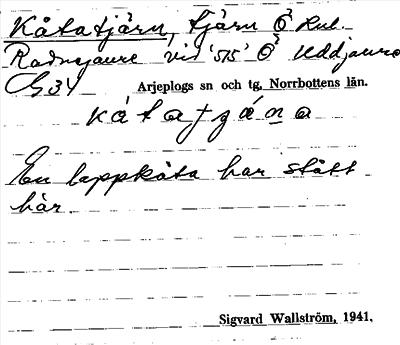 Kåtatjärn, tjärn Ö Hul.
Radnejaure vid '515' Ö Uddjaure
G34 Arjeplogs sn och tg, Norrbottens län.
kátatjäna
En lappkåta har stått
här.
Sigvard Wallström, 1941.